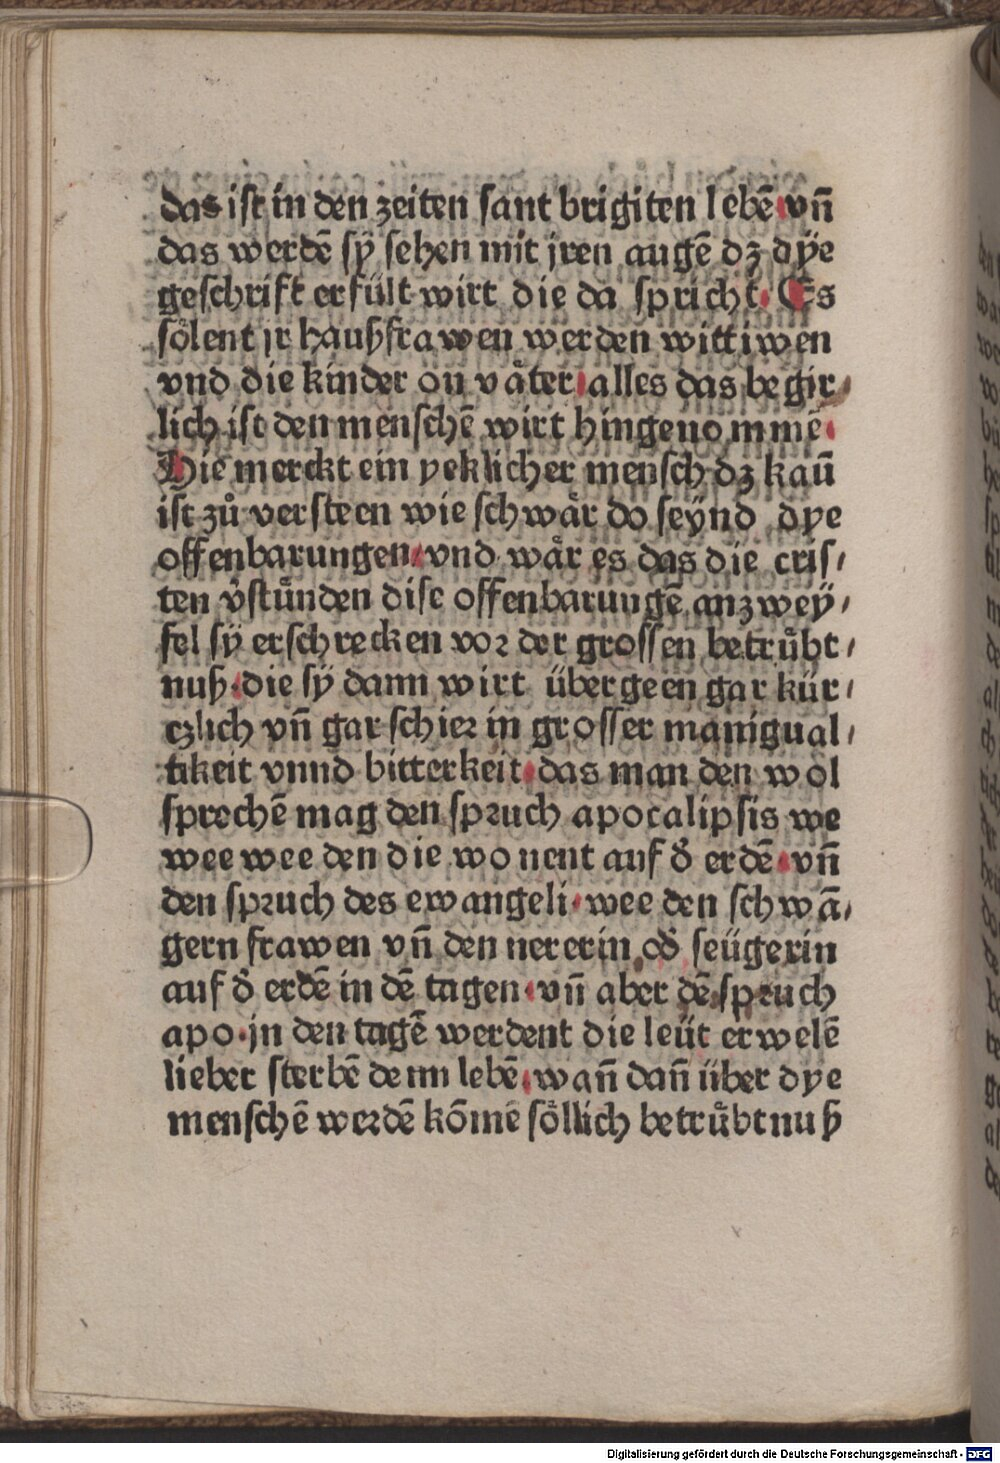 das ist in den zeiten sant brigiten lebē· vñ
das werdē sÿ sehen mit jren augē dz dÿe
geschrift erfült wirt die da spricht· Es
sôlent jr haußfrawen werden wittiwen
vnd die kinder on våter· alles das begir⸗
lich ist den menschē wirt hingenommē·
Hie merckt ein yeklicher mensch dz kaū
ist zů versteen wie schwår do seÿnd dÿe
offenbarungen· vnd wår es das die cris⸗
ten v̾stůnden dise offenbarungē anzweÿ⸗
fel sÿ erschrecken vor der grossen betrůbt⸗
nuß· die sÿ dann wirt übergeen gar kür⸗
czlich vñ gar schier in grosser manigual⸗
tikeit vnnd bitterkeit· das man den wol
sprechē mag den spruch apocalipsis we
wee wee den die wonent auf d̾ erdē· vñ
den spruch des ewangeli· wee den schwā⸗
gern frawen vñ den nererin od̾ seügerin
auf d̾ erdē in dē tagen· vñ aber dē spruch
apo· jn den tagē werdent die leüt erwelē
lieber sterbē denn lebē· wañ dañ über dÿe
menschē werdē kōmē sôllich betrůbtnuß
Digitalisierung gefördert durch die Deutsche Forschungsgemeinschaft - DFG